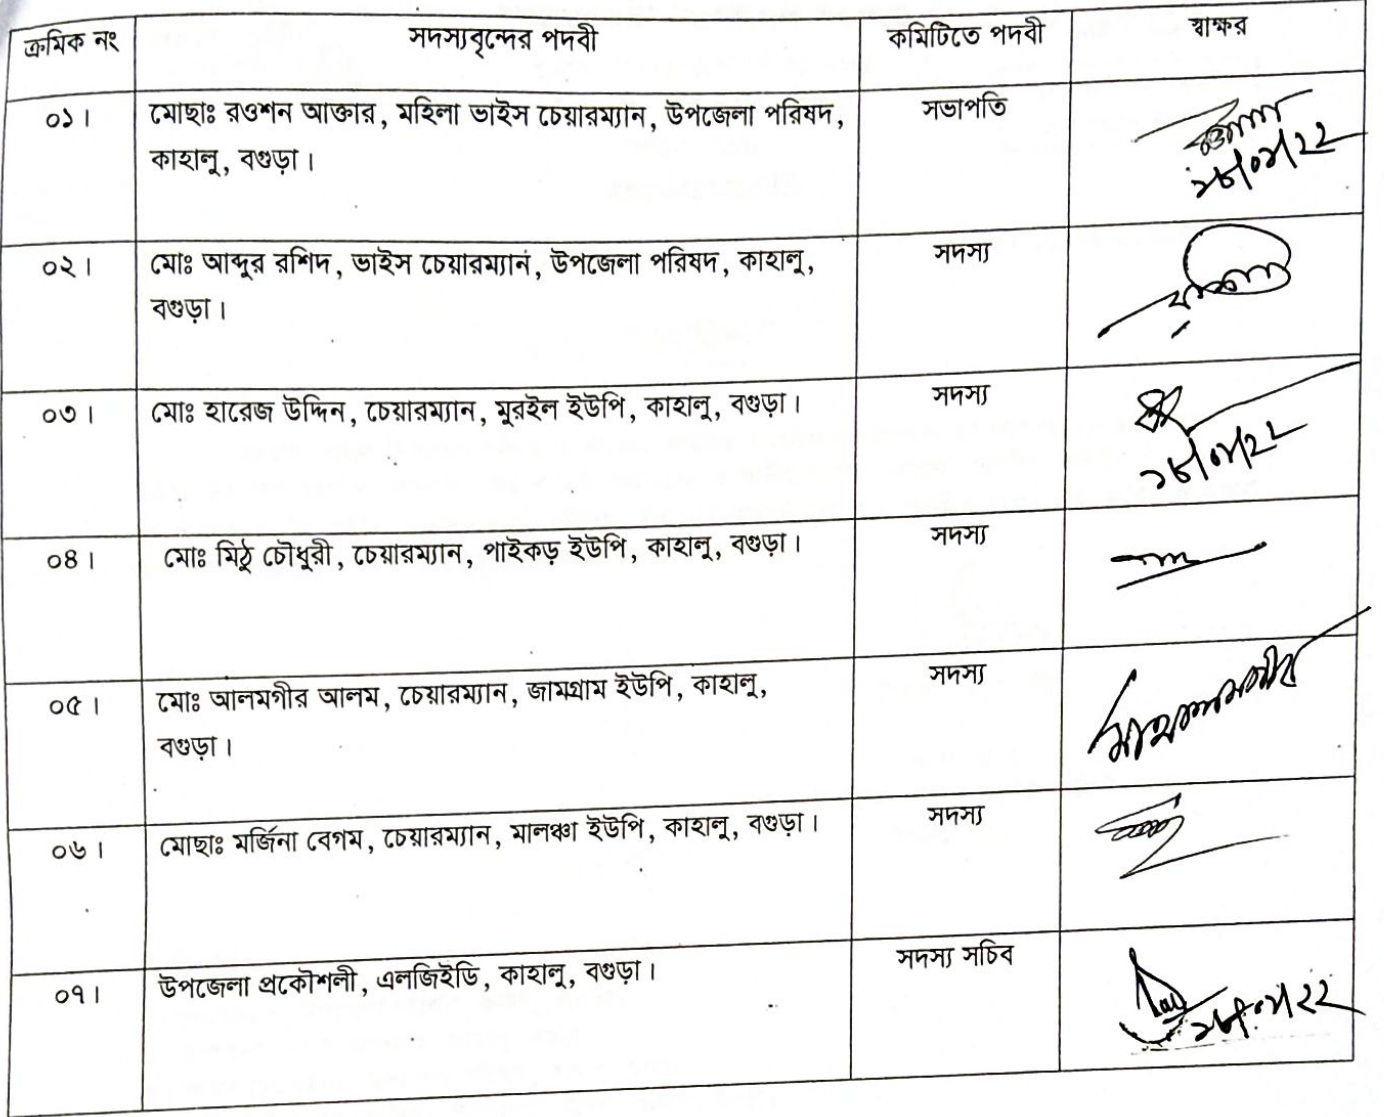 ক্রমিক নং সদস্যবৃন্দের পদবী কমিটিতে পদবী স্বাক্ষর
০১। মোছাঃ রওশন আক্তার, মহিলা ভাইস চেয়ারম্যান, উপজেলা পরিষদ, সভাপতি
কাহালু, বগুড়া।
০২। মোঃ আব্দুর রশিদ, ভাইস চেয়ারম্যান, উপজেলা পরিষদ, কাহালু, সদস্য
বগুড়া।
০৩। মোঃ হারেজ উদ্দিন, চেয়ারম্যান, মুরইল ইউপি, কাহালু, বগুড়া। সদস্য
০৪। মোঃ মিঠু চৌধুরী, চেয়ারম্যান, পাইকড় ইউপি, কাহালু, বগুড়া। সদস্য
০৫। মোঃ আলমগীর আলম, চেয়ারম্যান, জামগ্রাম ইউপি, কাহালু, সদস্য
বগুড়া।
০৬। মোছাঃ মর্জিনা বেগম, চেয়ারম্যান, মালঞ্চা ইউপি, কাহালু, বগুড়া। সদস্য
০৭। উপজেলা প্রকৌশলী, এলজিইডি, কাহালু, বগুড়া। সদস্য সচিব